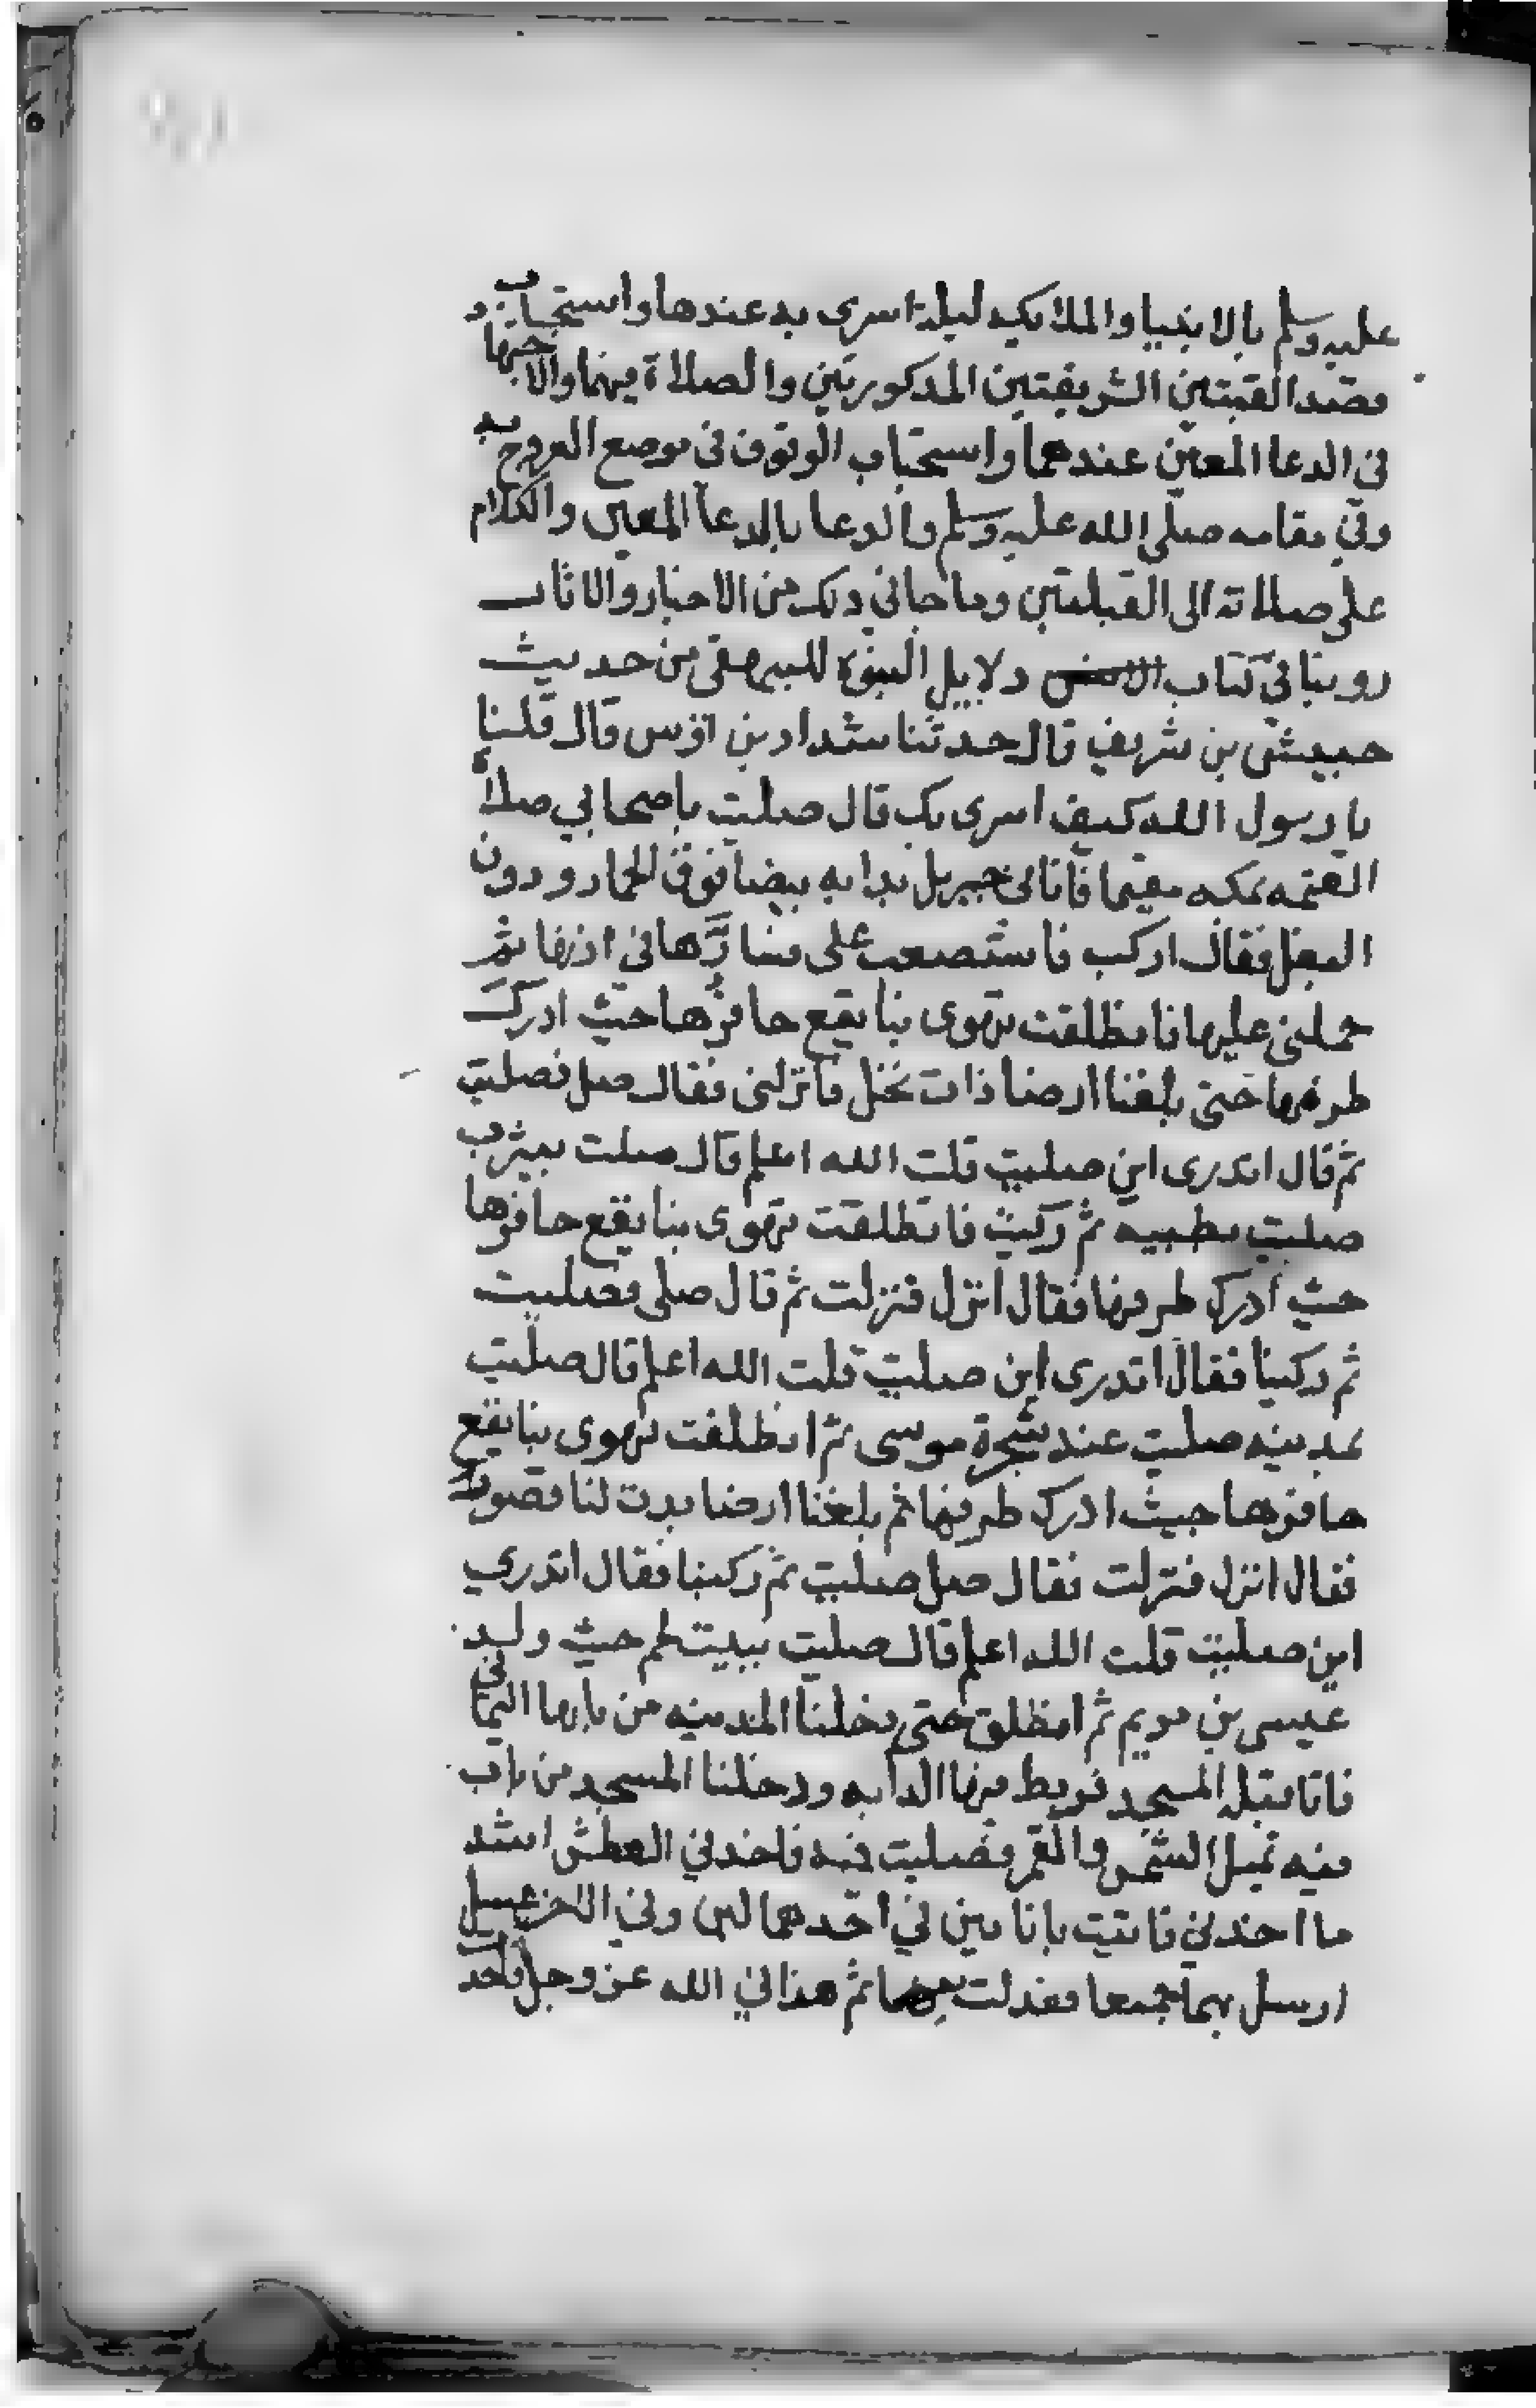 عليه وسلم بالانبيا والملايكه ليلة اسرى به عندها واستحباب
قصد القبتين الشريفتين المذكورتين والصلاة فيهما والاجتهاد
في الدعا المعين عندهما واستحباب الوقوف في موضع العروج به
وفي مقامه صلى الله عليه وسلم والدعا بالدعا المعين والكلام
على صلاته الى القبلتين وما جا في ذلك من الاخبار والاثار
روينا في كتاب دلايل النبوة للبيهقي من حديث
حبيش بن شريف قال حدثنا شداد بن اوس قال قلنا
يا رسول الله كيف اسرى بك قال صليت باصحابي صلاة
العتمه بمكه مقيما فاتاني جبريل بدابه بيضا فوق الحمار ودون
البغل فقال اركب فاستصعبت على فسارَّها في اذنها ثم
حملني عليها فانطلقت تهوى بنا يقع حافرها حيث ادرك
طرفها حتى بلغنا ارضا ذات نخل فانزلني فقال صل فصليت
ثم قال اتدرى اين صليت قلت الله اعلم قال صليت بيثرب
صليت بطيبه ثم ركبت فانطلقت تهوى بنا يقع حافرها
حيث ادرك طرفها فقال انزل فنزلت ثم قال صلى فصليت
ثم ركبنا فقال اتدرى اين صليت قلت الله اعلم قال صليت
بمدينه صليت عند شجرة موسى ثم انطلقت تهوى بنا يقع
حافرها حيث ادرك طرفها ثم بلغنا ارضا بدت لنا قصور
فقال انزل فنزلت فقال صل صليت ثم ركبنا فقال اتدري
اين صليت قلت الله اعلم قال صليت ببيت لحم حيث ولد
عيسى بن مريم ثم انطلق حتى دخلنا المدينه من بابها اليماني
فاتا قبلة المسجد فربط فيها الدابه ودخلنا المسجد من باب
فيه تميل الشمس والقمر فصليت فيه فاخذني العطش اشد
ما اخذني فاتيت بانا مين في احدهما لبن وفي الاخر عسل
ارسل بهما جميعا فعدلت بينهما ثم هداني الله عز وجل فاخذ